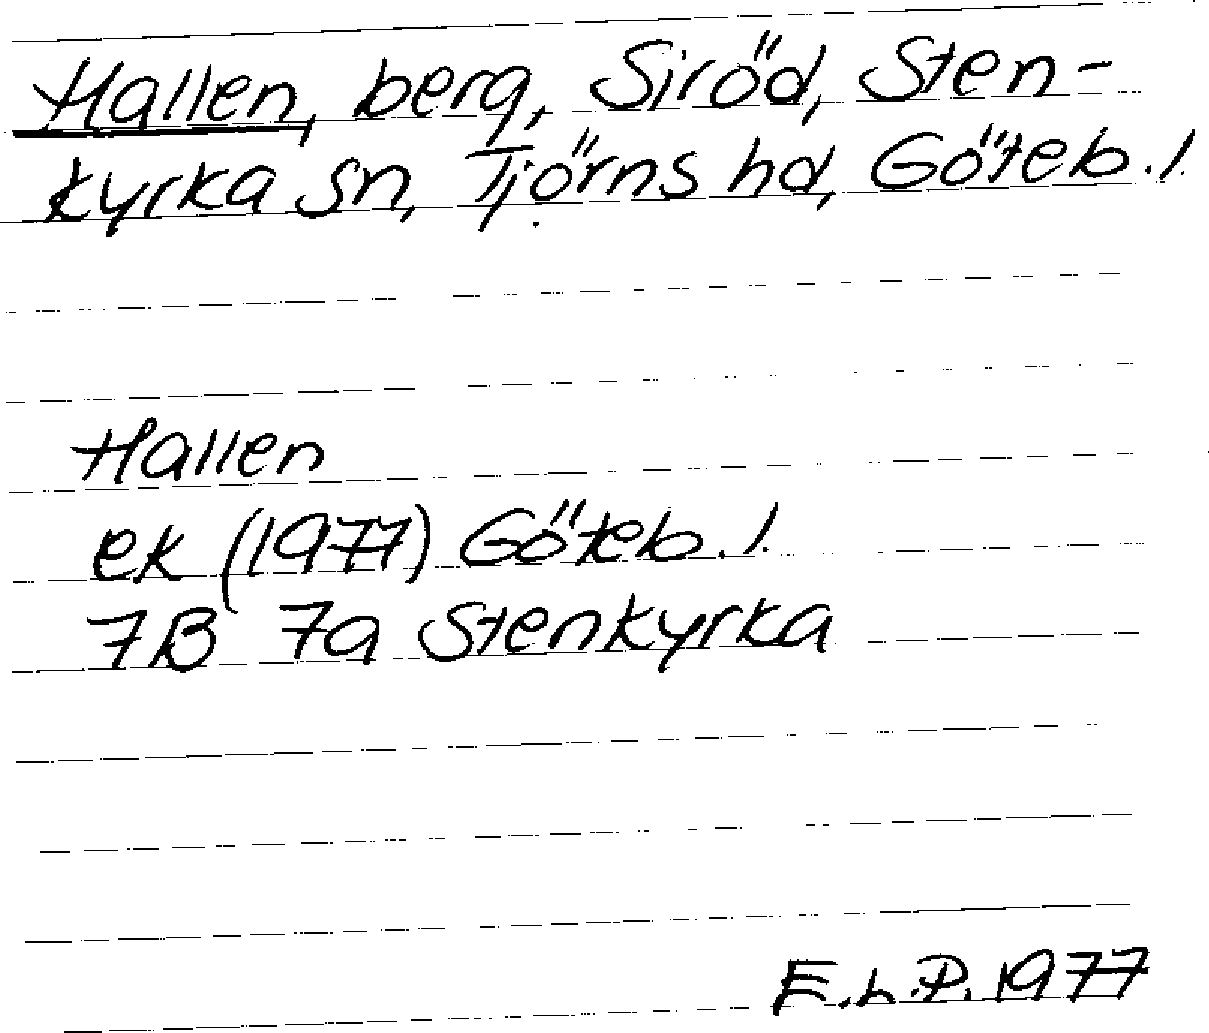 Hallen, berg, Siröd, Sten-
kyrka sn, Tjörns hd, Göteb. l.
Hallen
ek (1977) Göteb. l.
7B 7a Stenkyrka
E.L.P. 1977